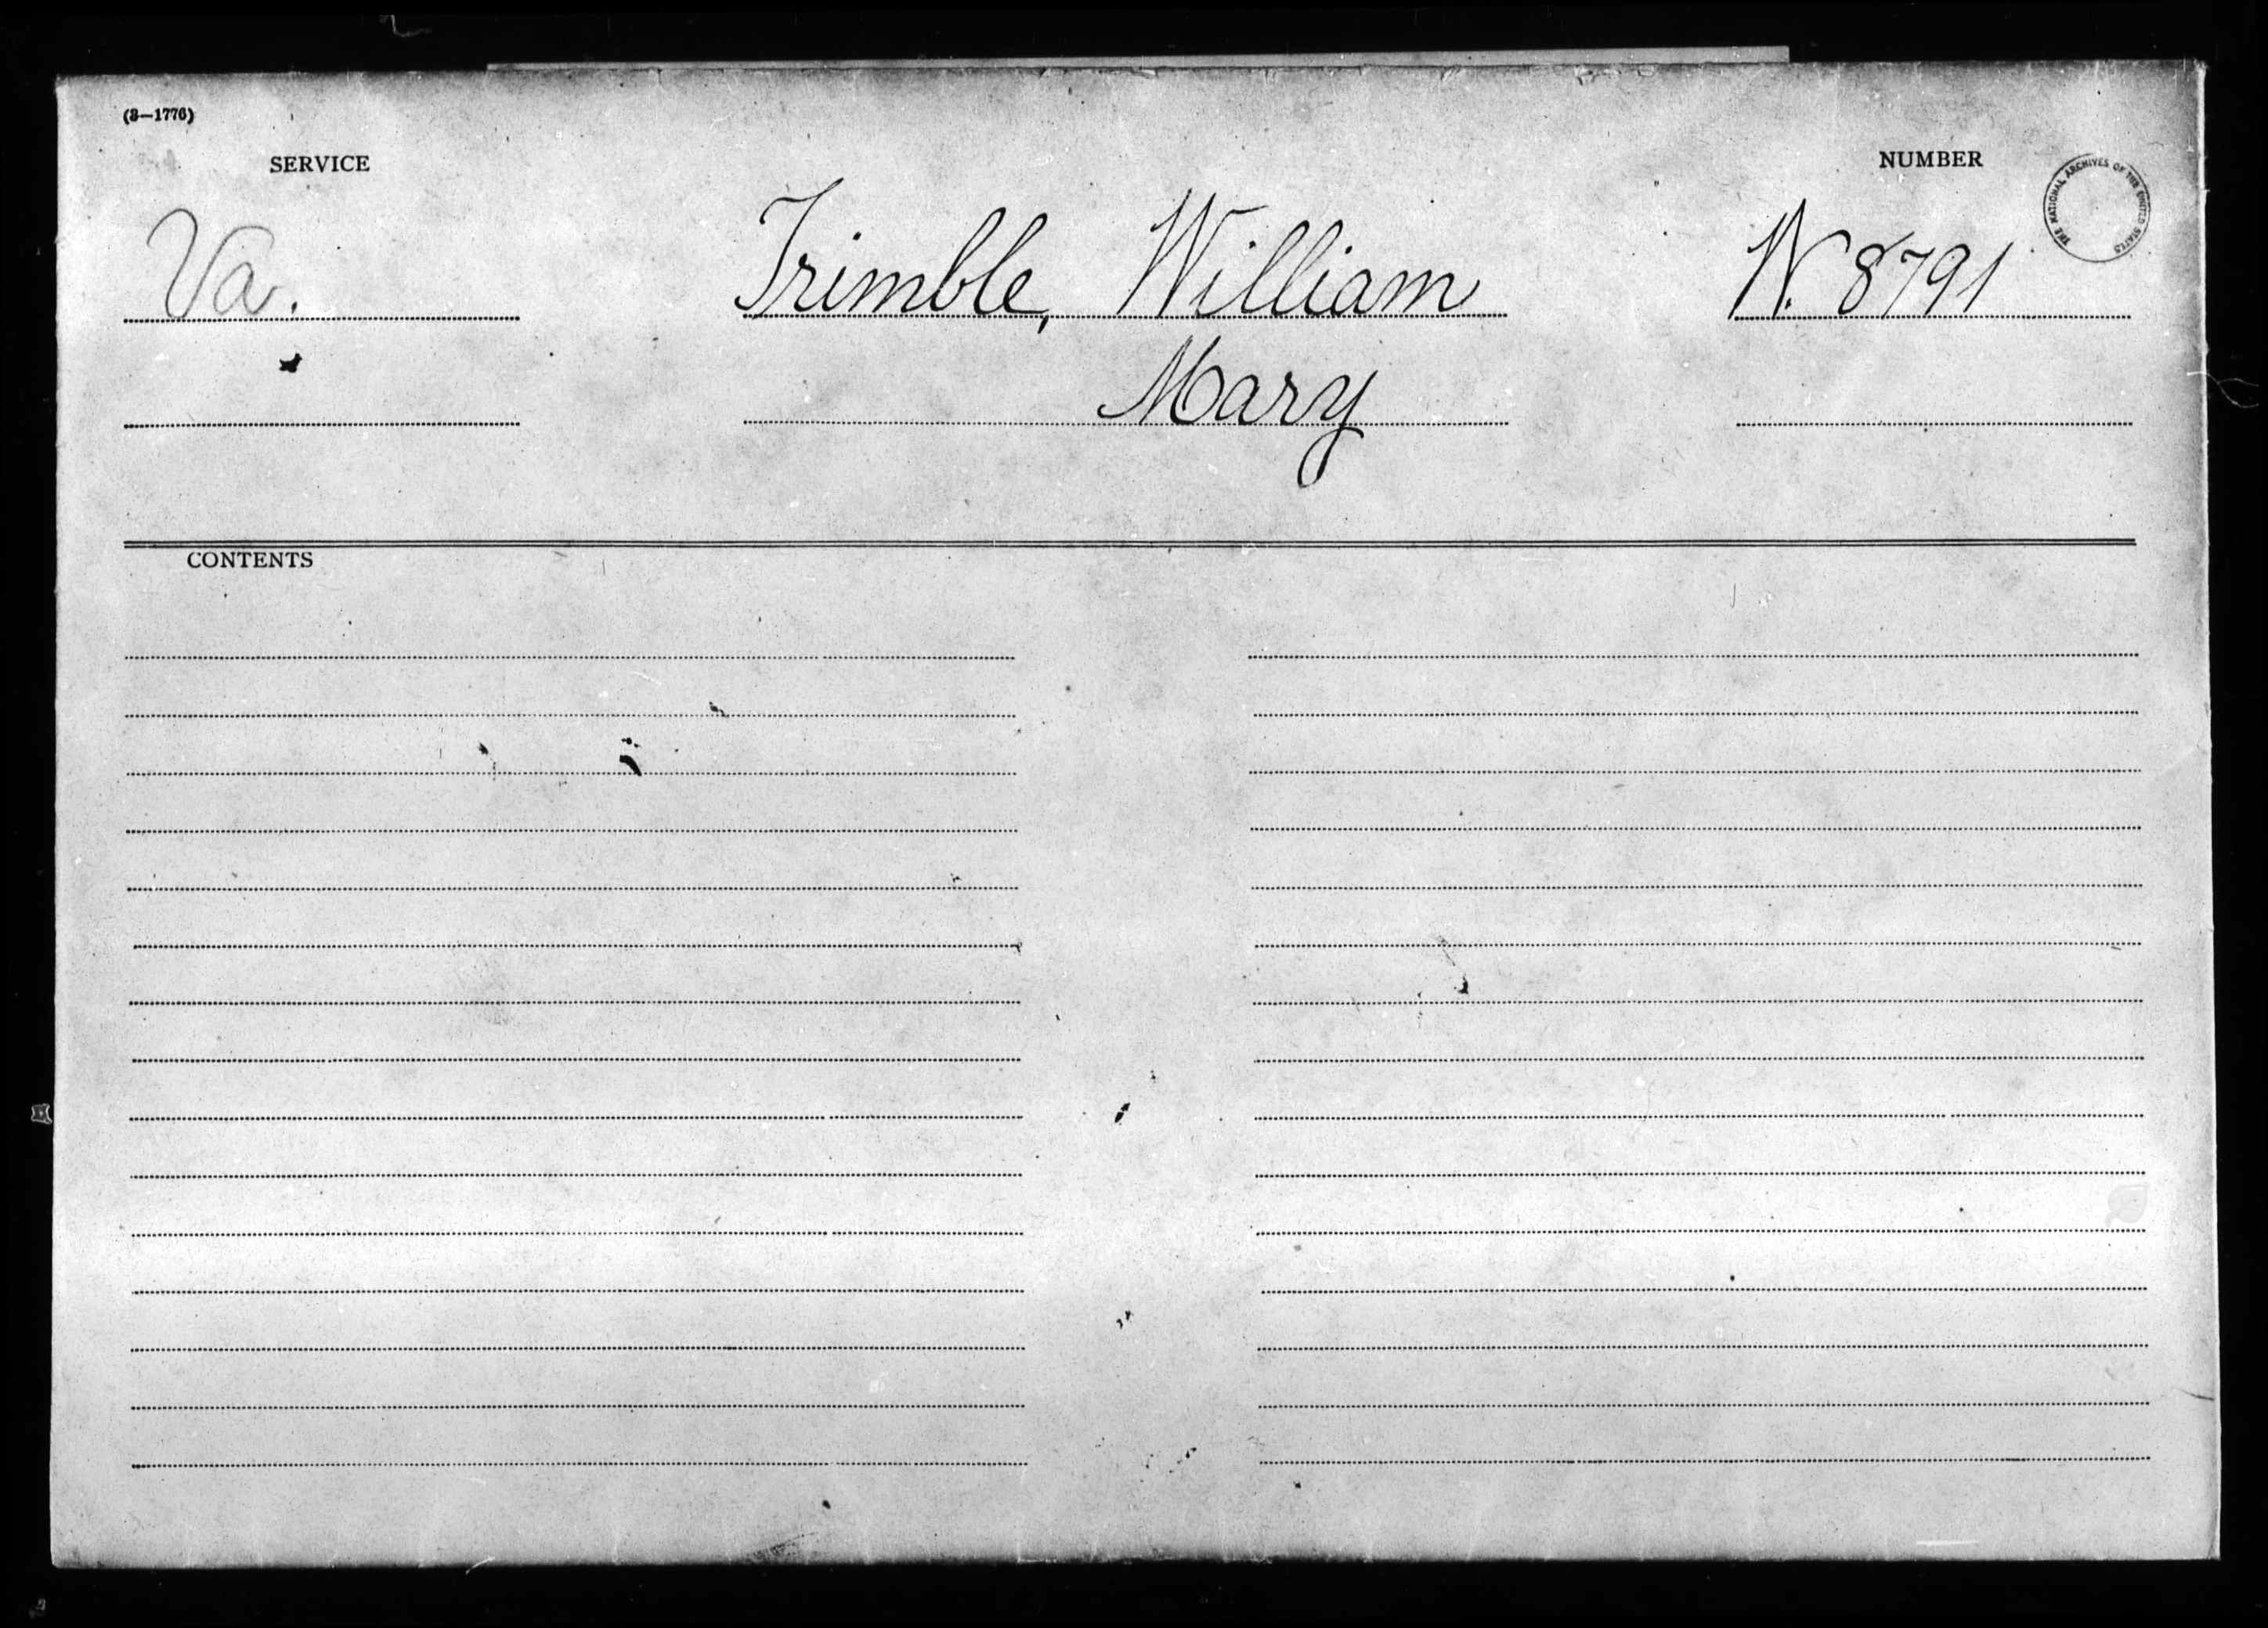 (3—1776)
SERVICE
NUMBER
THE NATIONAL ARCHIVES OF THE UNITED STATES
Va.
Trimble, William
W. 8791
Mary
CONTENTS